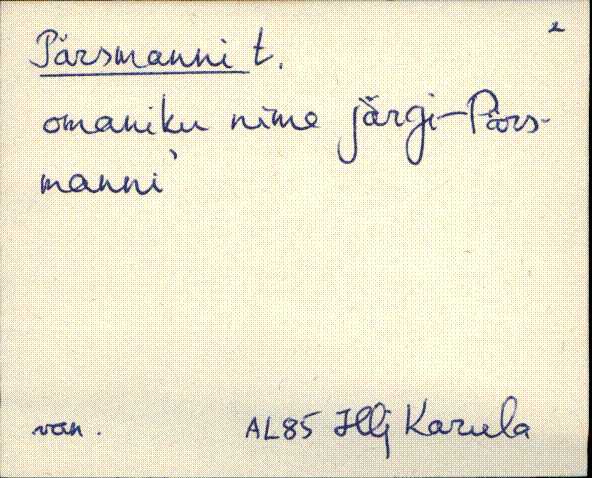 Pärsmanni t.
omaniku nime järgi - Pärs-
manni
van.
AL85 Hlj Karula